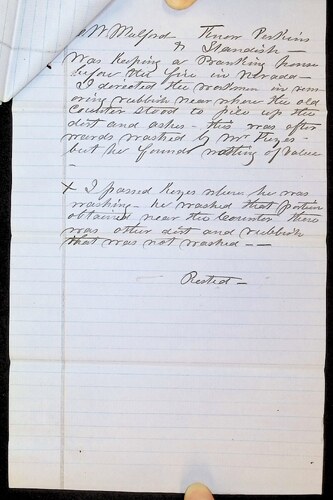 W Mulford Know Perkins
& Standish
was keeping a Branking house
before the fire in Nevada —
I directed the workmen in rem
oving rubbish near where the old
Counter stood to pile up the
dirt and ashes — this was after
wards washed by Mr Keyes —
but he found nothing of value
—
X I passed Keyes where he was
washing — he washed that portion
obtained near the Counter there
was other dirt and rubbish
that was not washed — —
Rested —